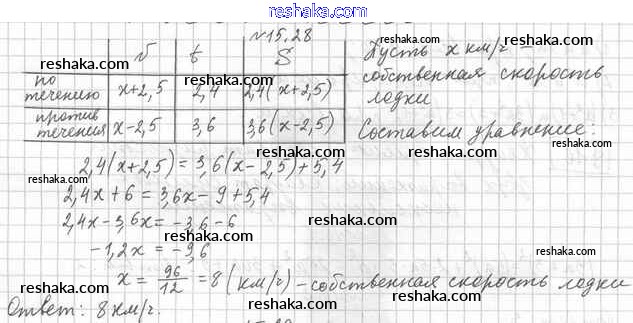 reshaka.com
№15.28
v t S
по течению x+2,5 2,4 2,4(x+2,5)
против течения x-2,5 3,6 3,6(x-2,5)
Пусть x км/ч –
собственная скорость
лодки
Составим уравнение:
2,4(x+2,5) = 3,6(x-2,5)+5,4
2,4x+6 = 3,6x-9+5,4
2,4x-3,6x = -3,6-6
-1,2x = -9,6
x = 96/12 = 8 (км/ч) – собственная скорость лодки
Ответ: 8 км/ч.
reshaka.com
reshaka.com
reshaka.com
reshaka.com
reshaka.com
reshaka.com
reshaka.com
reshaka.com
reshaka.com
reshaka.com
reshaka.com
reshaka.com